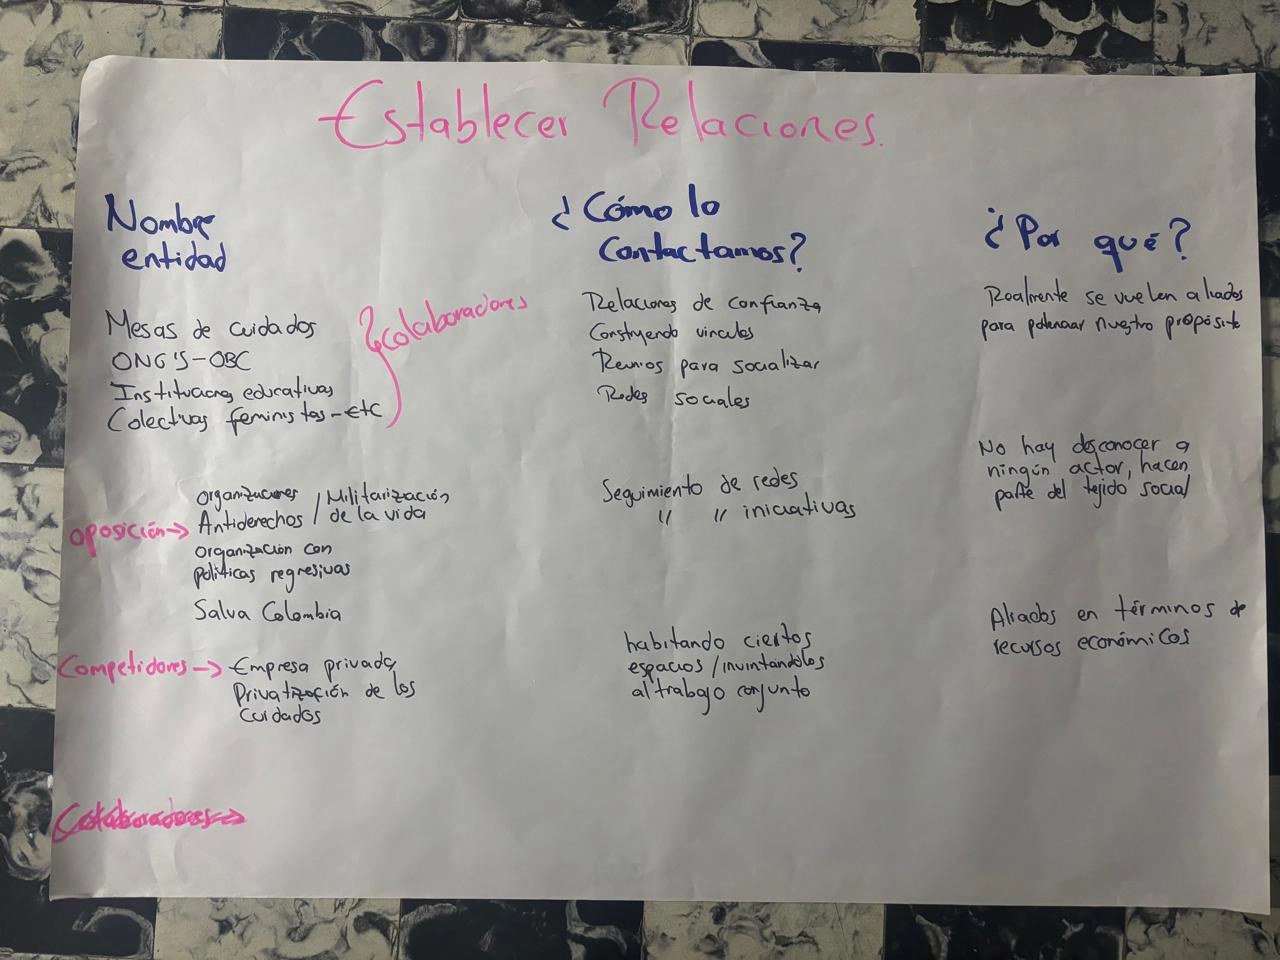 Establecer Relaciones.
Nombre
entidad
Mesas de cuidados
ONG'S-OBC
Instituciones educativas
Colectivas feministas-etc
colaboradores
¿Cómo lo
contactamos?
Relaciones de confianza
Construyendo vinculos
Reunios para socializar
Redes sociales
¿Por qué?
Realmente se vuelen aliados
para potenciar nuestro propósito
oposición→
organizaciones / Militarización
Antiderechos / de la vida
organización con
políticas regresivas
Salva Colombia
Seguimiento de redes
" " iniciativas
No hay desconocer a
ningún actor, hacen
parte del tejido social
Competidores→
Empresa privada,
Privatización de los
cuidados
habitando ciertos
espacios/invintándolos
al trabajo conjunto
Aliados en términos de
recursos económicos
Colaboradores→